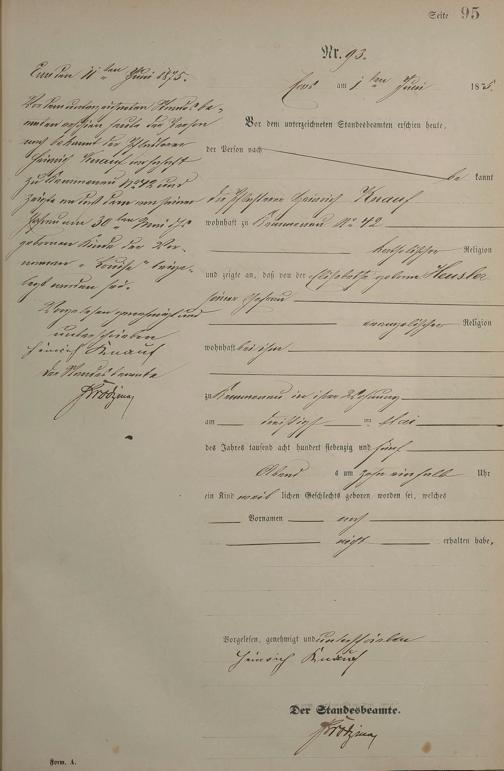 Seite 95
Nr. 93.
Ems am 1ten Juni 1875.
Vor dem unterzeichneten Standesbeamten erschien heute,
der Person nach
be kannt
der Pflasterer Heinrich Knauf
wohnhaft zu Kemmenau No 42
katholischer Religion
und zeigte an, daß von der Elisabetha geborne Heusler
seiner Ehefrau
evangelischer Religion
wohnhaft bei ihm
zu Kemmenau in ihrer Wohnung
am dreißigsten Mai
des Jahres tausend acht hundert siebenzig und fünf
Abends um zehn einhalb Uhr
ein Kind weib lichen Geschlechts geboren worden sei, welches
Vornamen noch
nicht erhalten habe.
Vorgelesen, genehmigt und unterschrieben
Heinrich Knauf
Der Standesbeamte.
Ems den 11ten Juni 1875.
Vor dem unterzeichneten Standesbe-
amten erschien heute der Person
nach bekannt der Pflasterer
Heinrich Knauf wohnhaft
zu Kemmenau No 42 und
zeigte an daß dem von seiner
Ehefrau am 30ten Mai
gebornen Kinde der Vor-
namen "Louise" beige-
legt worden sei.
Vorgelesen genehmigt und
unterschrieben
Heinrich Knauf
Der Standesbeamte
Form. A.